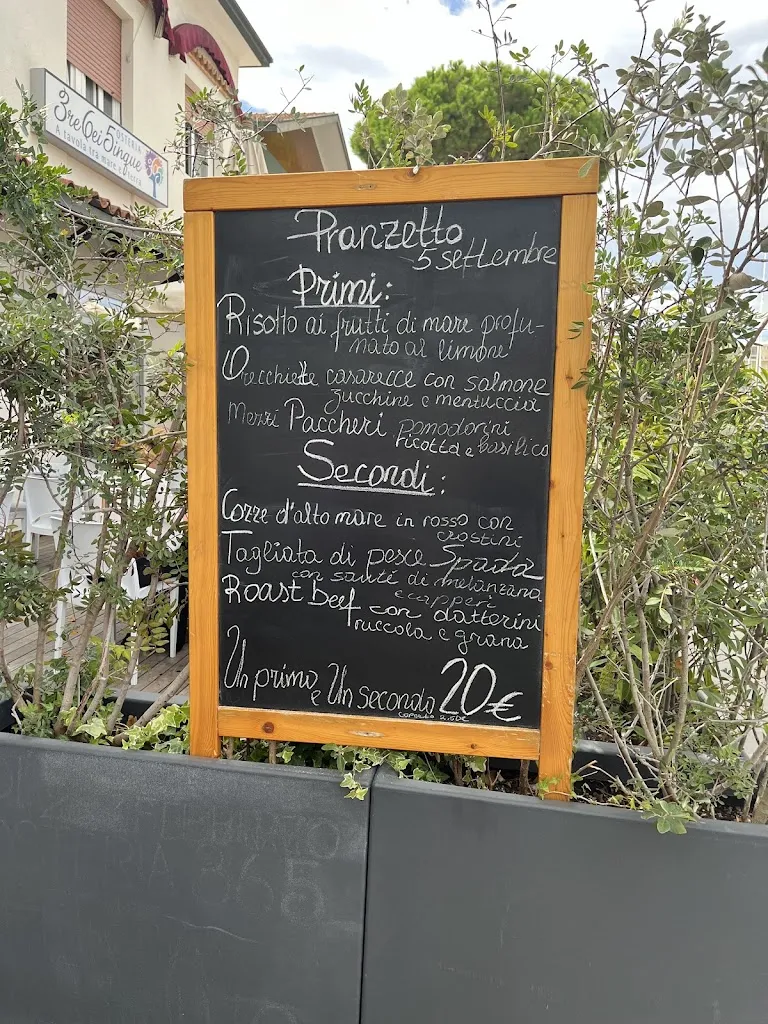 OSTERIA
3re 6ei 5inque
A tavola tra mare e terra
Pranzetto
5 settembre
Primi:
Risotto ai frutti di mare profu-
mato al limone
Orecchiette casarecce con salmone
zucchine e mentuccia
Mezzi Paccheri pomodorini
ricotta e basilico
Secondi:
Cozze d'alto mare in rosso con
crostini
Tagliata di pesce Spada
con sauté di melanzana
e capperi
Roast beef con datterini
ruccola e grana
Un primo e Un secondo 20€
coperto 2.50€
365